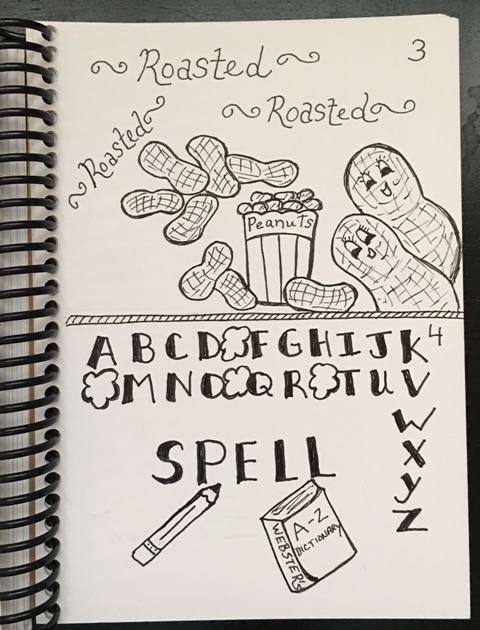 3
Roasted
Roasted
Roasted
Peanuts
4
A B C D F G H I J K
M N O Q R T U V
W
X
y
Z
SPELL
WEBSTER'S
A-Z
DICTIONARY